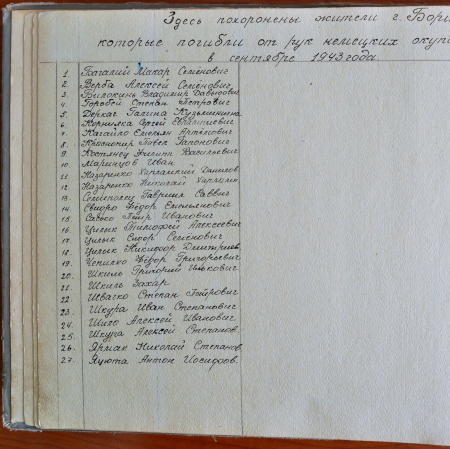 Здесь похоронены жители г. Бори
которые погибли от рук немецких окуп
в сентябре 1943 года
1. Багалий Макар Семенович
2. Верба Алексей Семенович
3. Билокинь Владимир Давыдович
4. Горобей Степан Петрович
5. Деркач Галина Кузьминична
6. Корнияка Сергей
7. Кагайло Емельян Артёмович
8. Красnokир Павел Гапонович
9. Костянец Филипп Васильевич
10. Маринцов Иван
11. Назаренко Харлампий Данилов
12. Назаренко Николай Харламп
13. Семиполец Гавриил Саввич
14. Свидро Фёдор Емельянович
15. Сасько Пётр Иванович
16. Цилык Тимофей Алексеевич
17. Цилык Сидор Семенович
18. Цилык Никифор Дмитриев
19. Чепилко Фёдор Григорьевич
20. Шкиль Григорий Илькович
21. Шкиль Захар
22. Швачко Степан Петрович
23. Шкура Иван Степанович
24. Шило Алексей Иванович
25. Шкура Алексей Степанов.
26. Ярмак Николай Степанов
27. Яцюта Антон Иосифов.